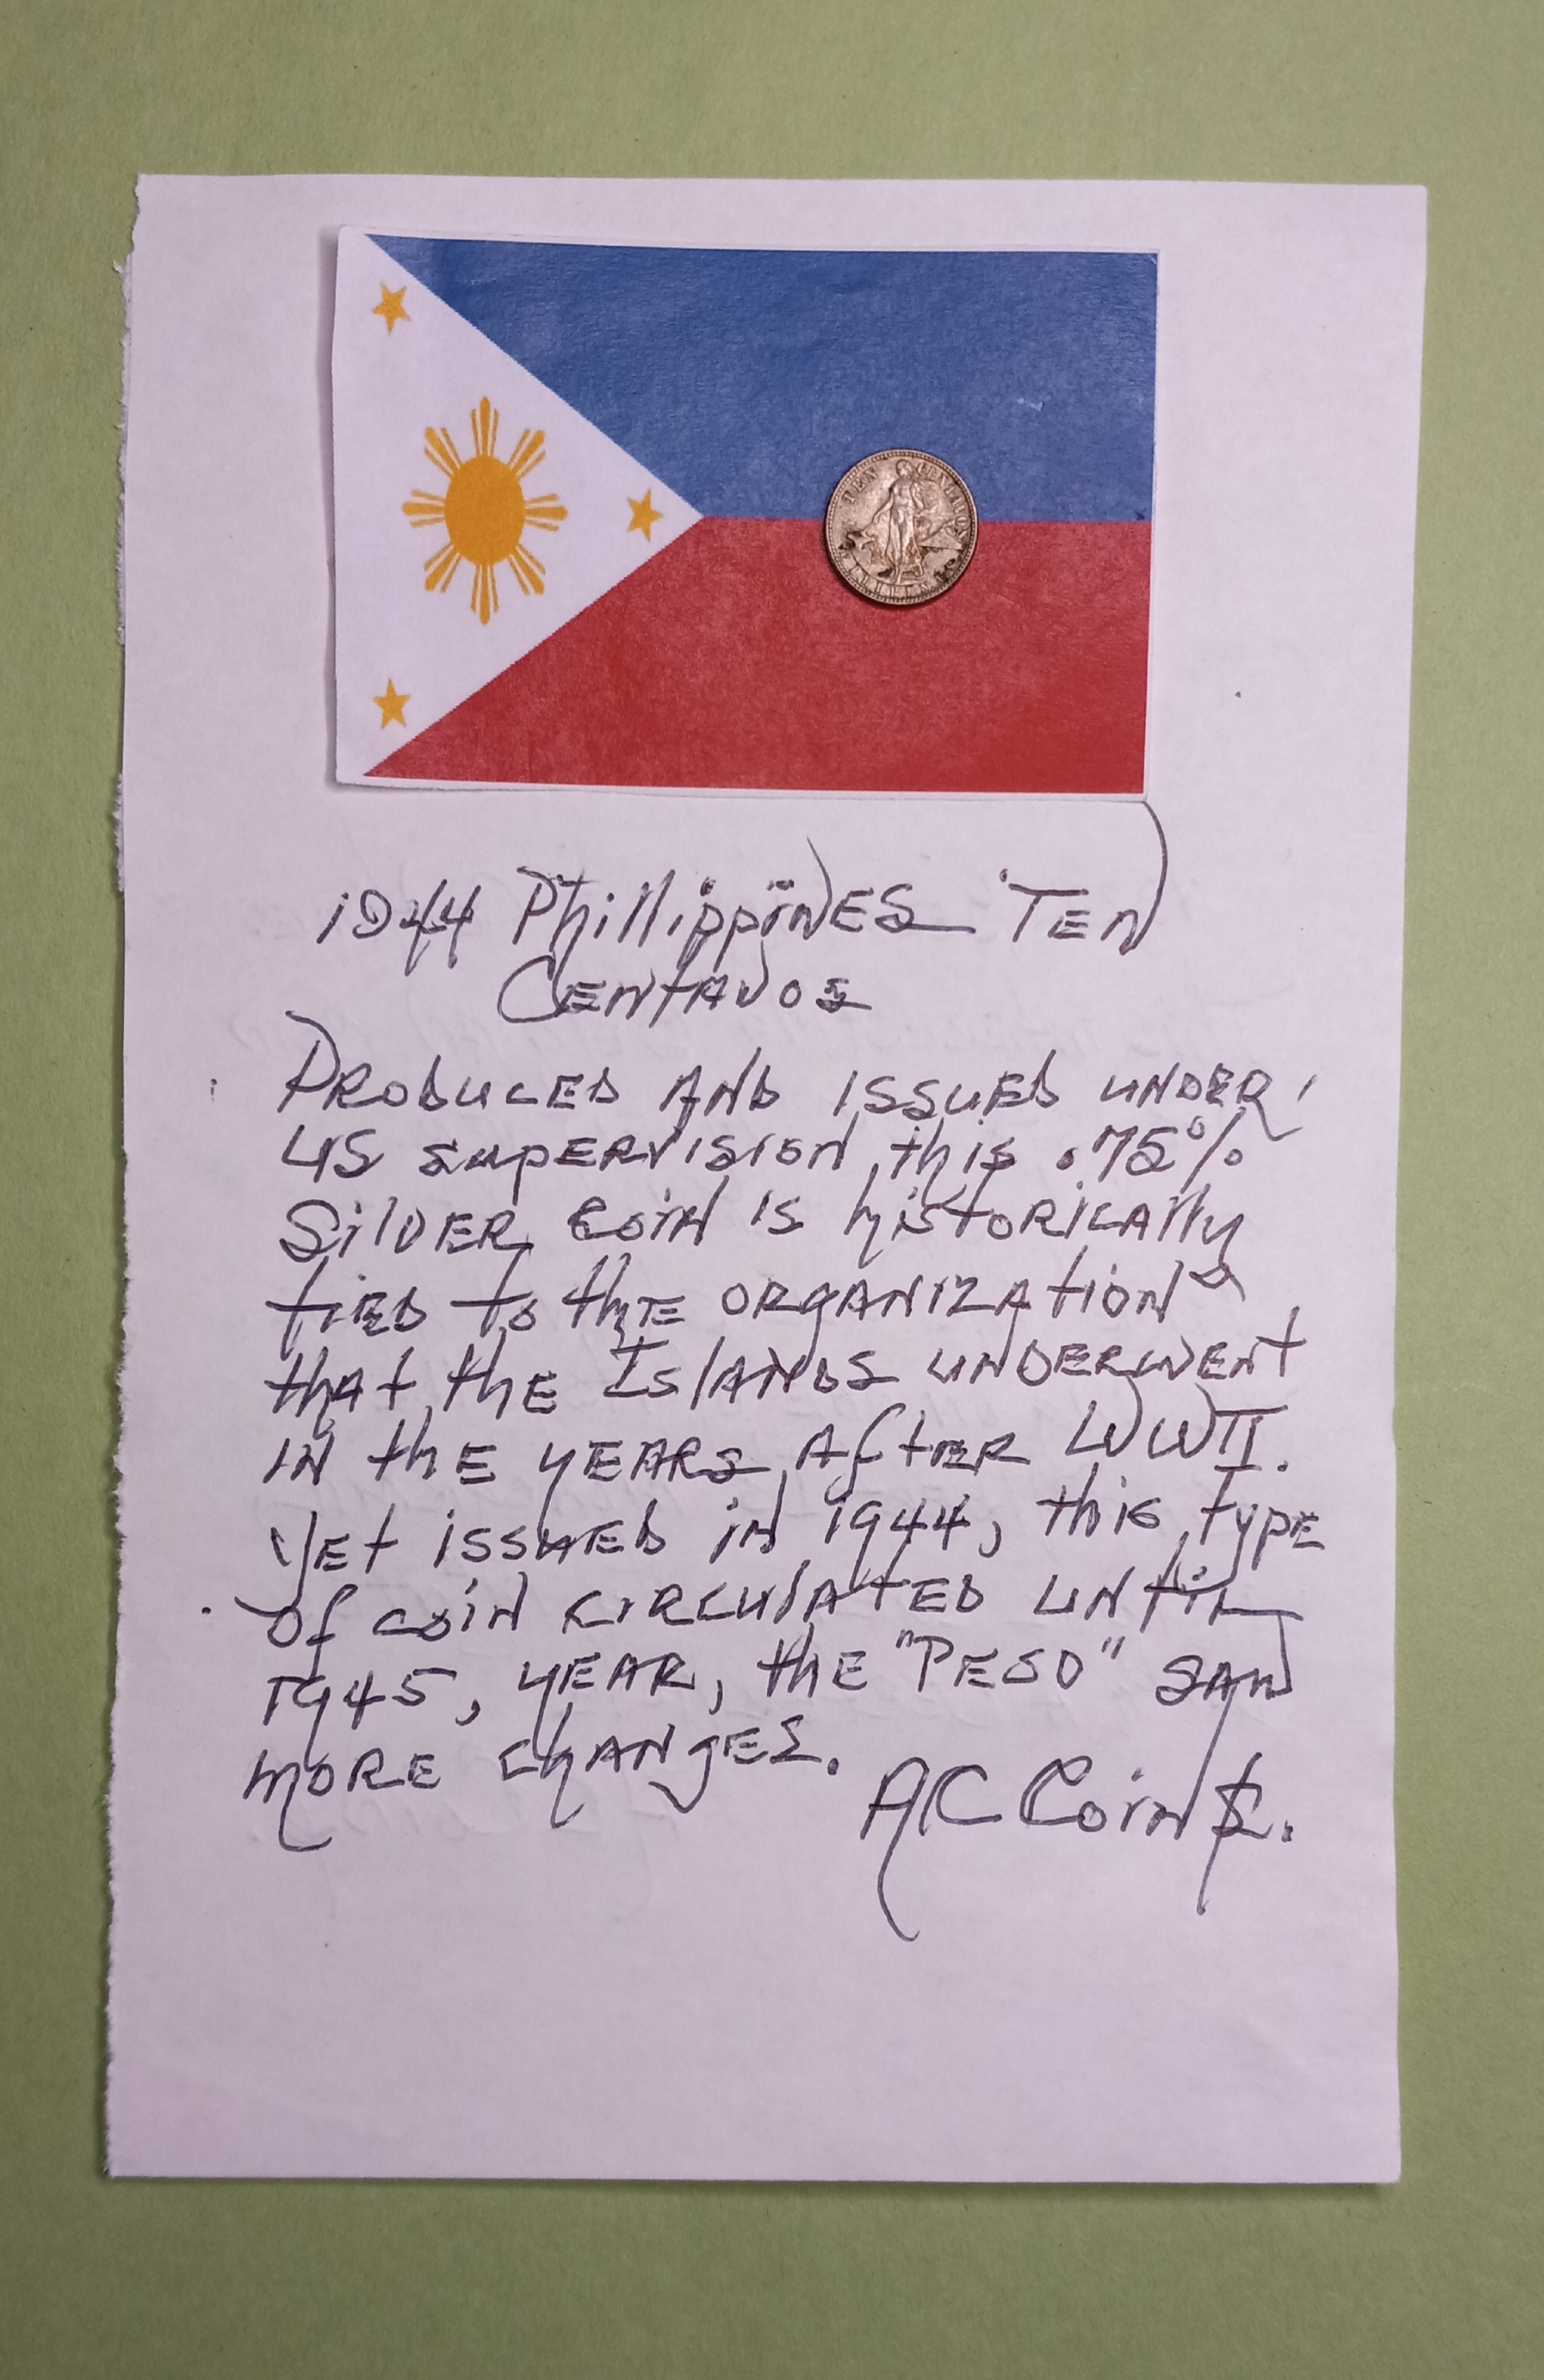 TEN CENTAVOS
FILIPINAS
1944 Phillippines Ten
Centavos
Produced and issued under
US supervision, this .75%
Silver coin is historically
tied to the organization
that the Islands underwent
in the years after WWII.
Yet issued in 1944, this type
of coin circulated until
1945, year, the "Peso" saw
more changes.
AC Coin$.